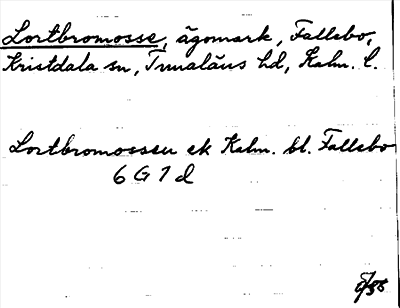 Lortbromosse, ägomark, Fallebo,
Kristdala sn, Tunaläns hd, Kalm. l.
Lortbromossen ek Kalm. bl. Fallebo
6 G 7 d